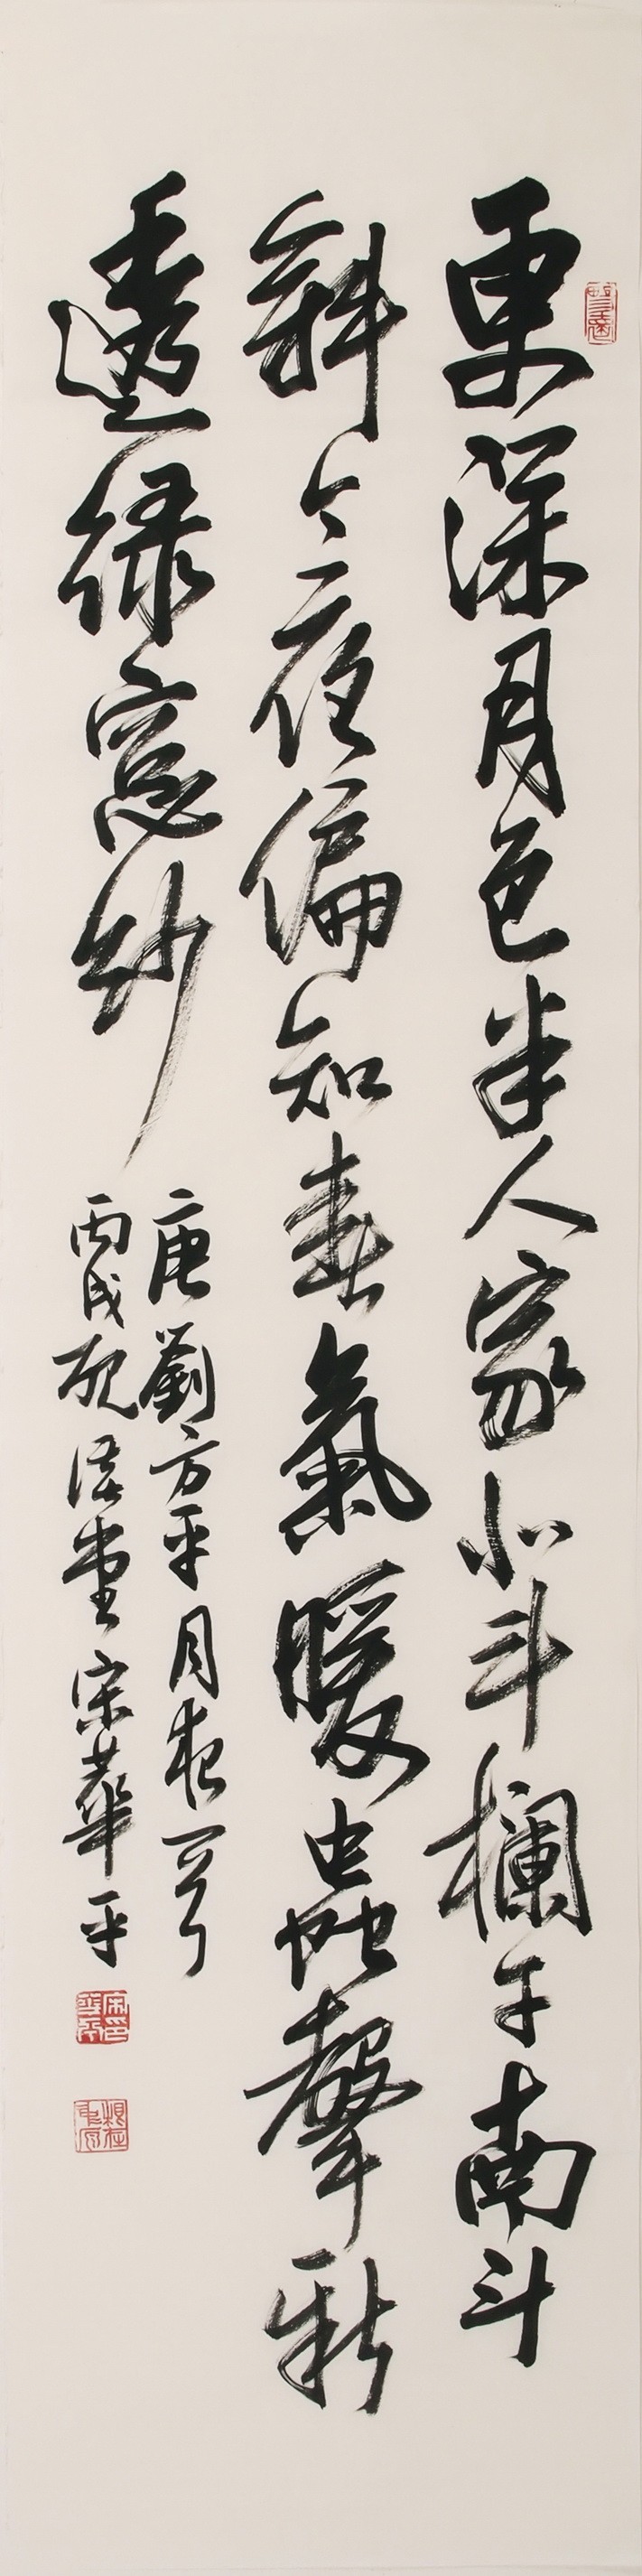 更深月色半人家北斗欄干南斗
斜今夜偏知春氣暖蟲聲新
透綠窓紗
唐劉方平月夜一首
丙戌 堂宋華平